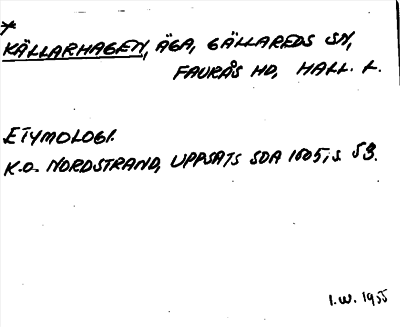 *
KÄLLARHAGEN, ÄGA, GÄLLAREDS SN,
FAURÅS HD, HALL. L.
ETYMOLOGI.
K.O. NORDSTRAND, UPPSATS SDA 1605, S 53.
I.W. 1955